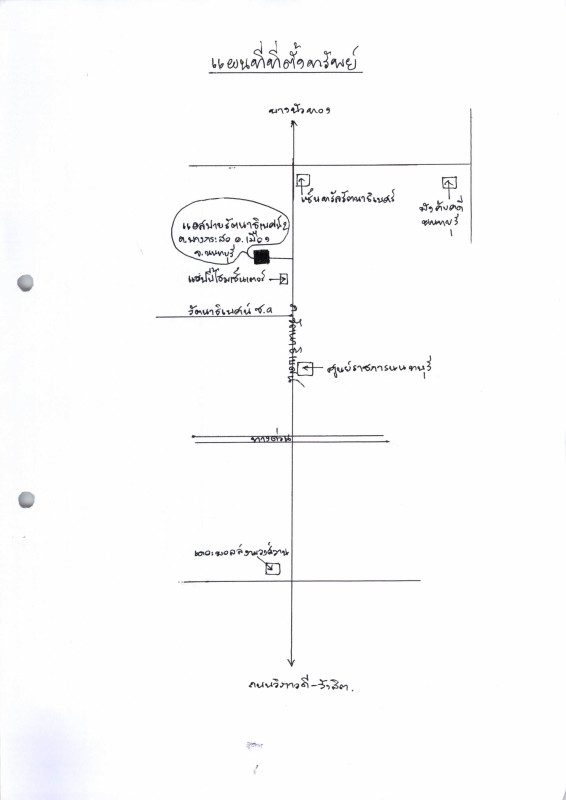 แผนที่ที่ตั้งทรัพย์
บางบัวทอง
เซ็นทรัลรัตนาธิเบศร์
บังคับคดี
นนทบุรี
แอสปายรัตนาธิเบศร์ 2
ต.บางกระสอ อ.เมือง
จ.นนทบุรี
แฮปปี้โฮมเซ็นเตอร์
รัตนาธิเบศน์ ซ.8
ถ.รัตนาธิเบศน์
ศูนย์ราชการนนทบุรี
ทางด่วน
เดอะมอลล์งามวงศ์วาน
ถนนวิภาวดี-รังสิต.